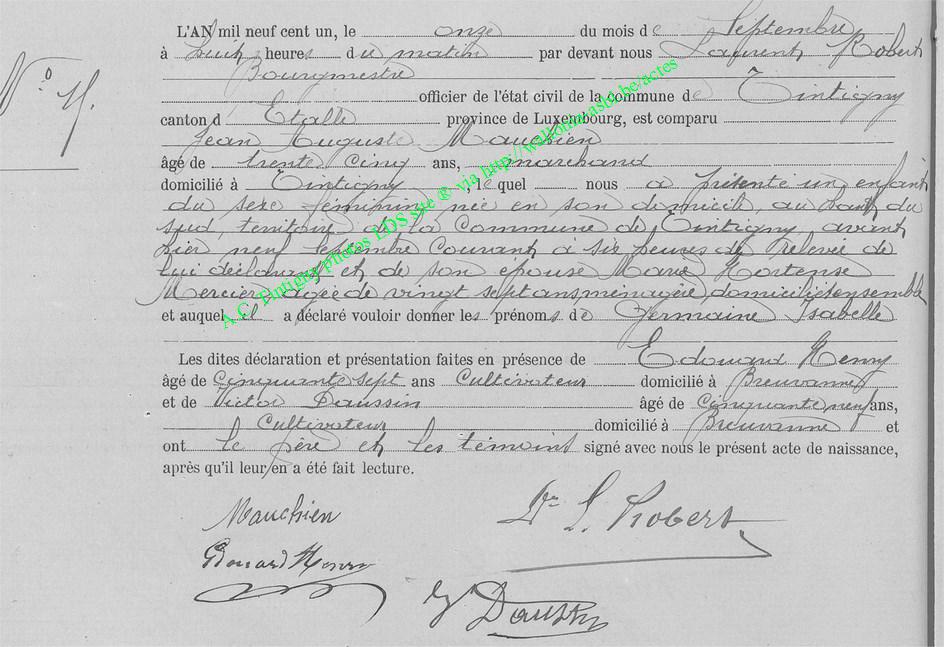 L'AN mil neuf cent un, le onze du mois de Septembre
à huit heures du matin par devant nous Laurent Robert
Bourgmestre
officier de l'état civil de la commune de Tintigny
canton d Etalle province de Luxembourg, est comparu
Jean Auguste Mauchien
âgé de trente cinq ans, marchand
domicilié à Tintigny, le quel nous a présenté un enfant
du sexe féminin née en son domicile, au du
sud, territoire de la Commune de Tintigny avant
hier neuf septembre courant à six heures de relevée de
lui déclarant et de son épouse Marie Hortense
Mercier agée de vingt sept ans ménagère domiciliés ensemble
et auquel il a déclaré vouloir donner les prénoms de Germaine Isabelle
Les dites déclaration et présentation faites en présence de Edouard Henry
âgé de Cinquante sept ans Cultivateur domicilié à Breuvanne
et de Victor Daussin âgé de Cinquante neuf ans,
Cultivateur domicilié à Breuvanne et
ont le père et les témoins signé avec nous le présent acte de naissance,
après qu'il leur en a été fait lecture.
N° 71.
A.C. Tintigny photos LDS site ® via http://wallonia.asbl.be/actes
Mauchien
Dr L. Robert
Edouard Henry
V Daussin